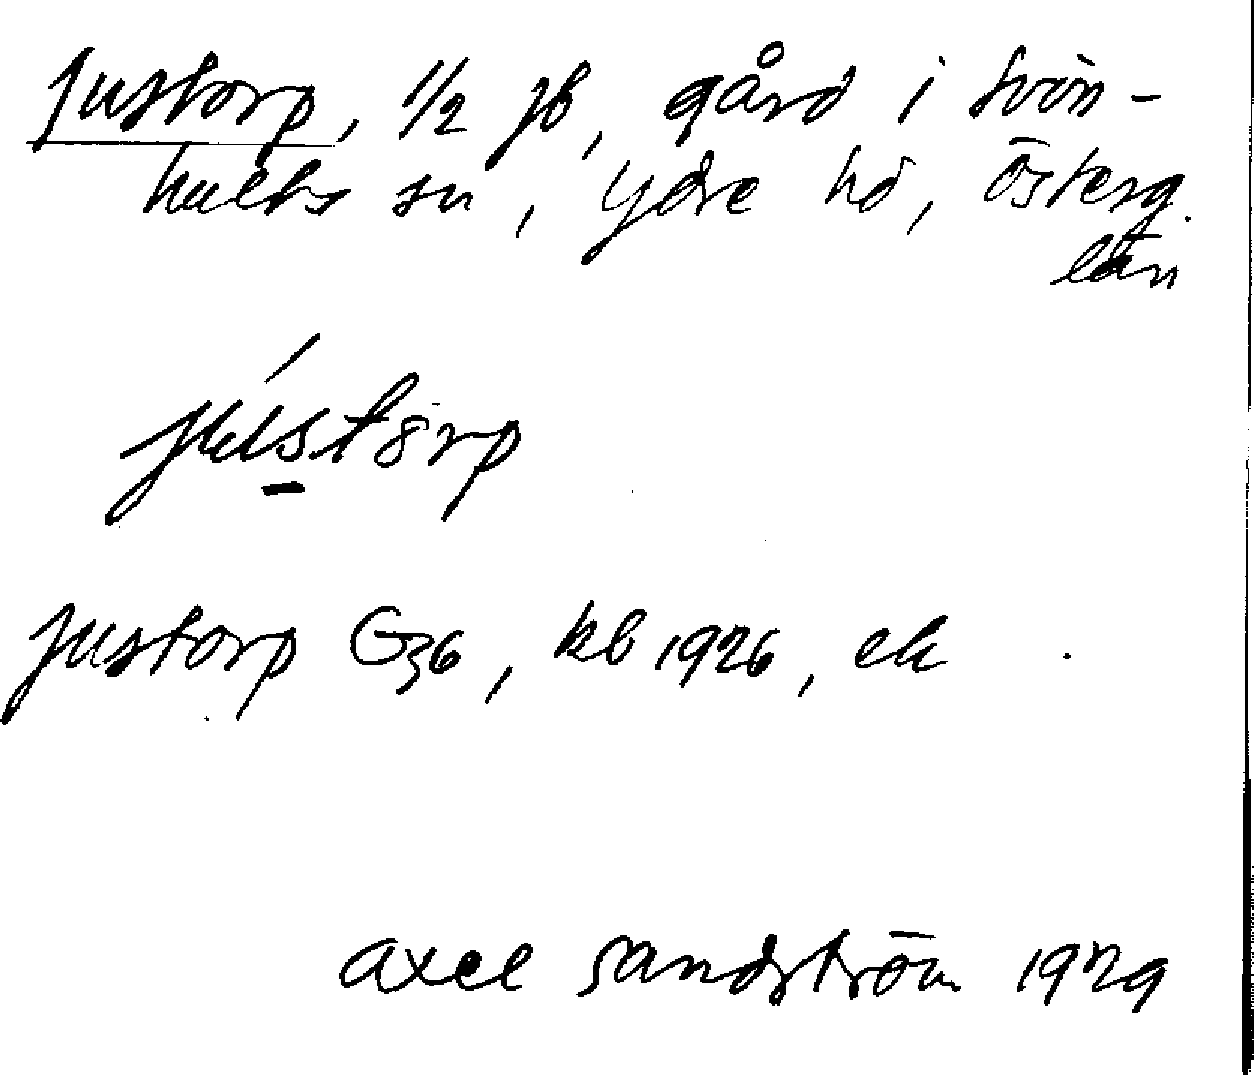 Justorp, 1/2 jb, gård i Svin-
hults sn, Ydre hd, Österg.
län
jústorp
Justorp G36, kb 1926, ek
Axel Sandström 1929